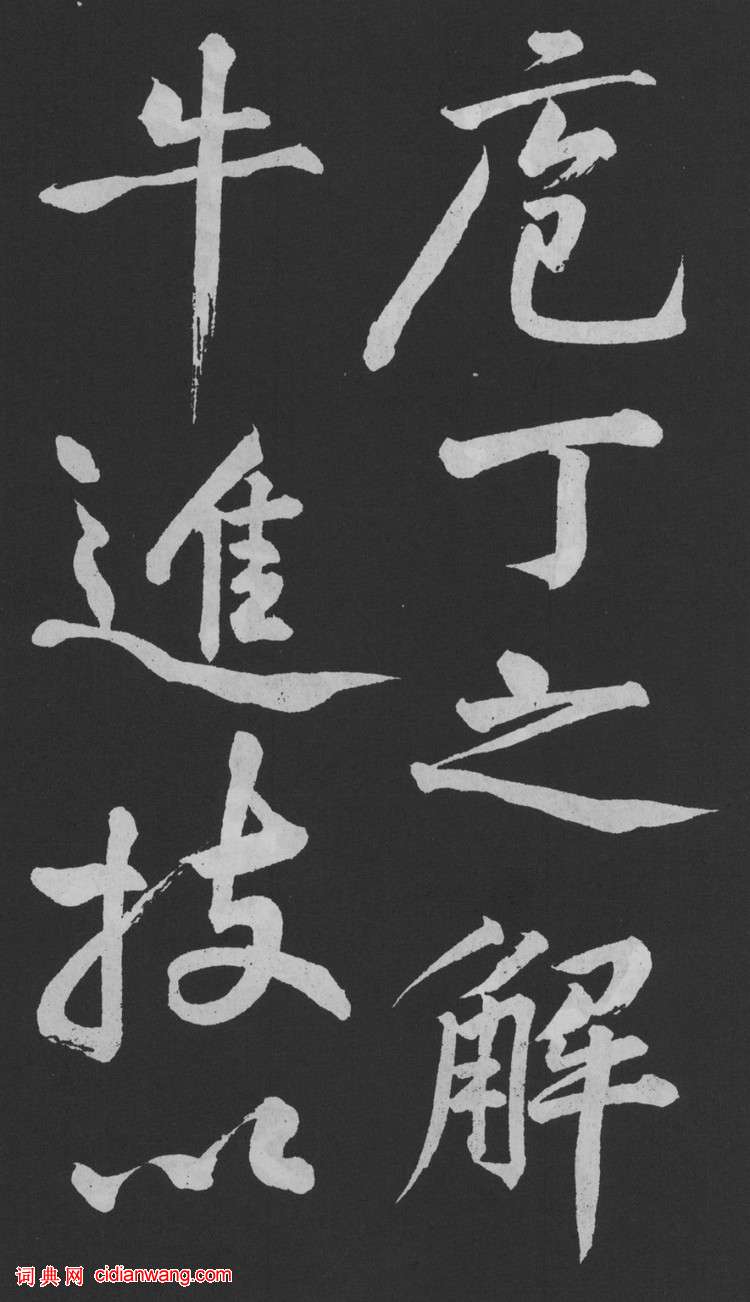 庖丁之解
牛進技以
词典网 cidianwang.com